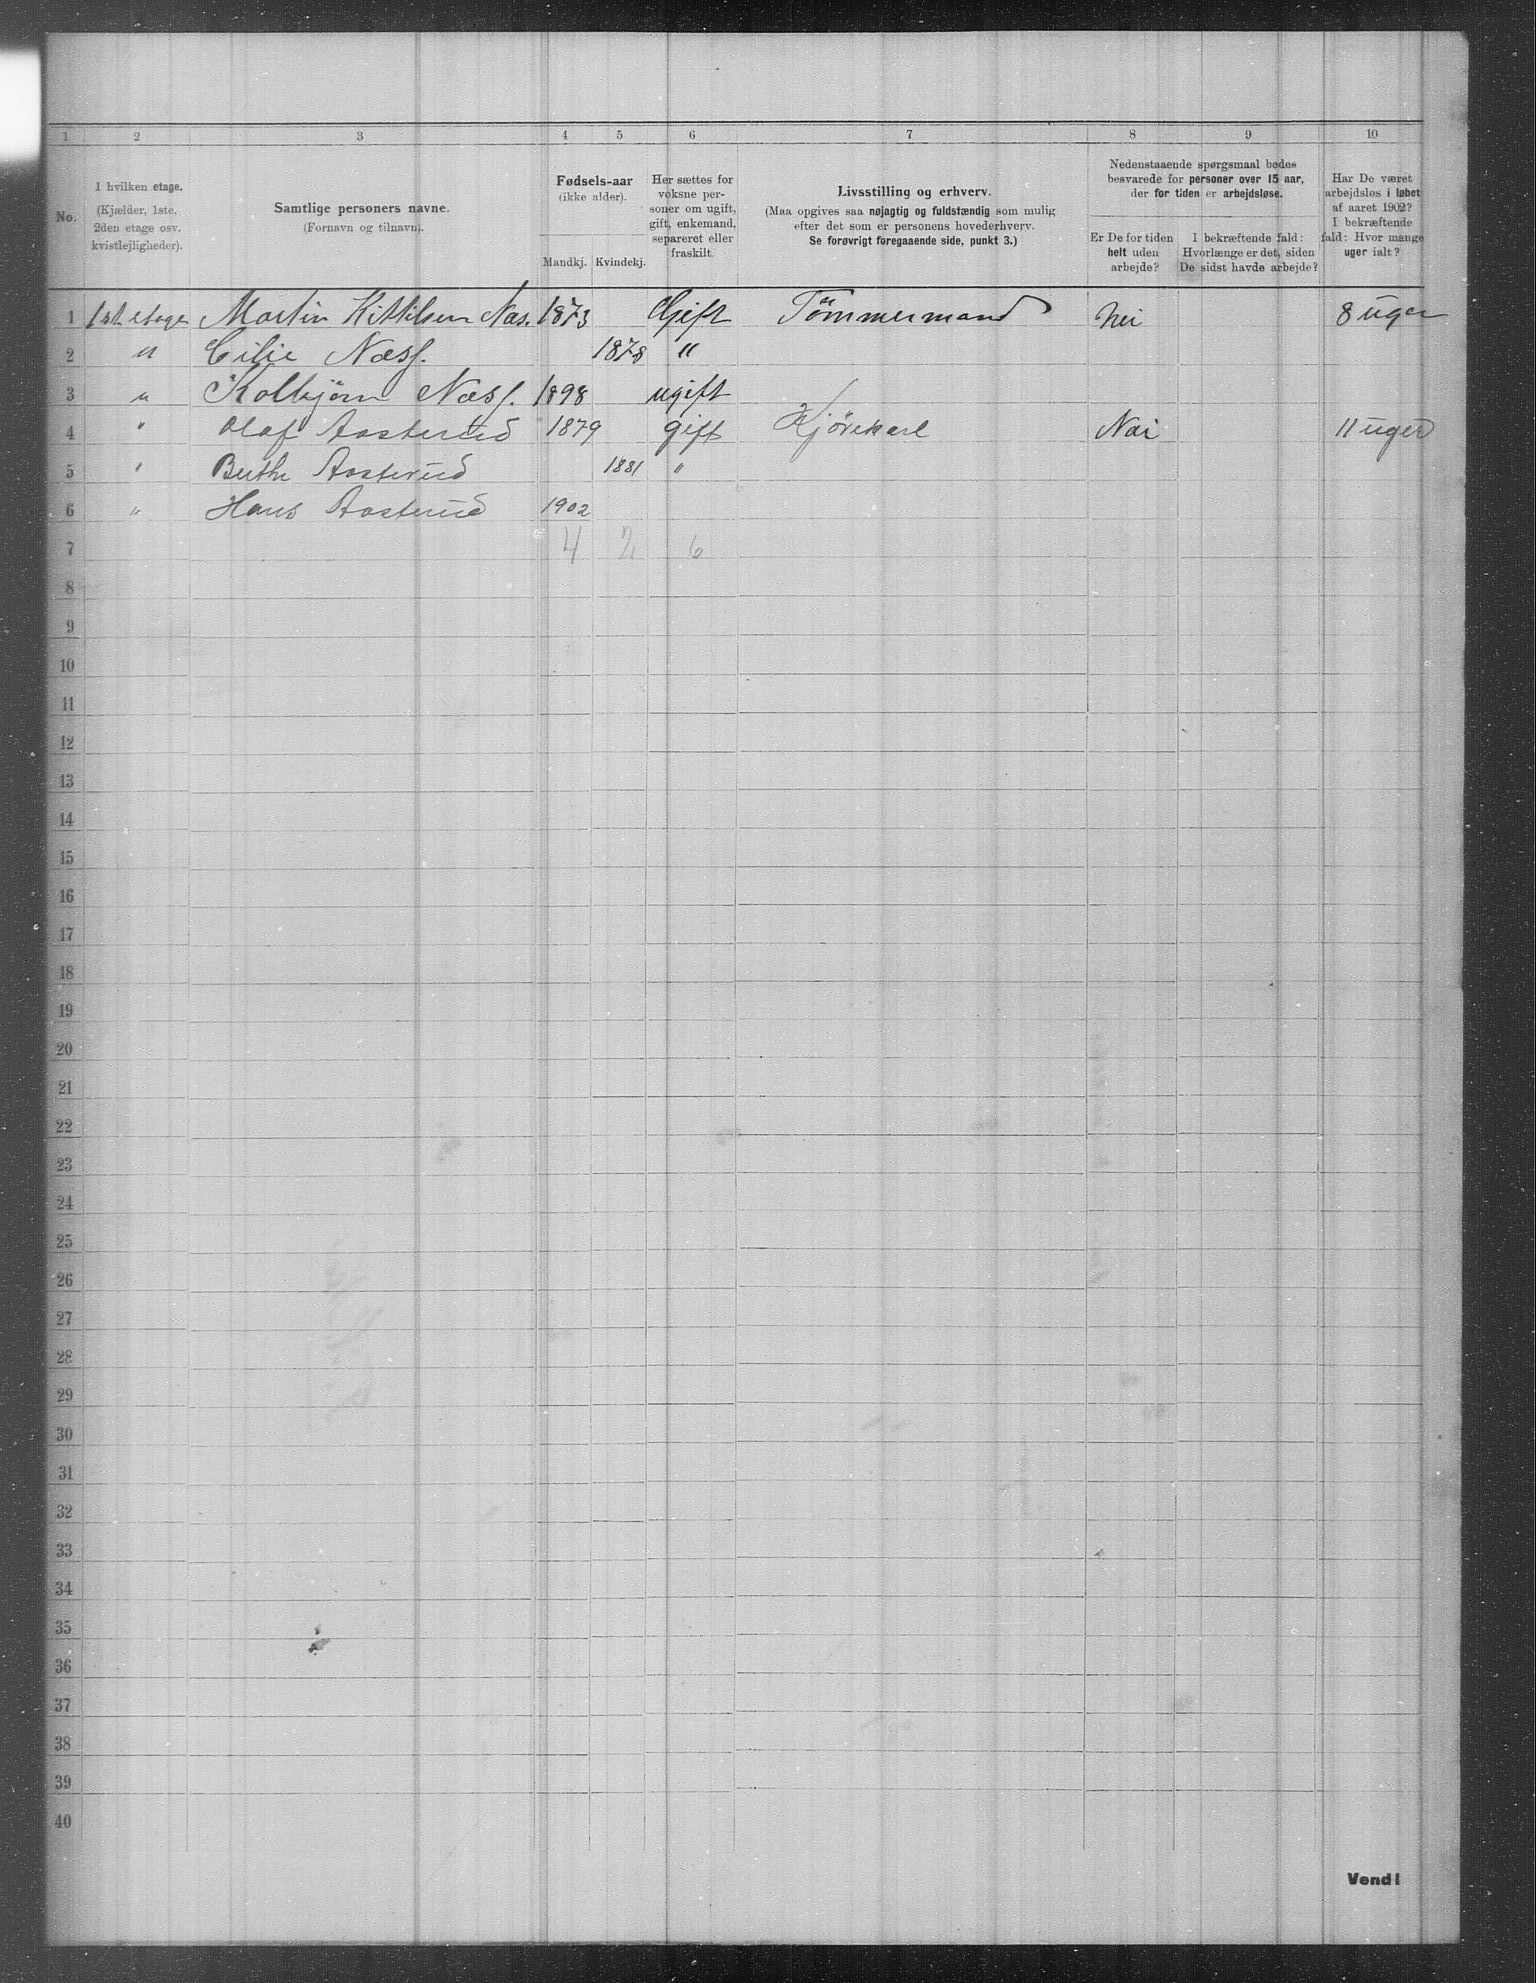 1 2 3 4 5 6 7 8 9 10
No.
I hvilken etage.
(Kjælder, 1ste.
2den etage osv.
kvistlejligheder).
Samtlige personers navne.
(Fornavn og tilnavn).
Fødsels-aar
(ikke alder).
Mandkj. Kvindekj.
Her sættes for
voksne per-
soner om ugift,
gift, enkemand,
separeret eller
fraskilt.
Livsstilling og erhverv.
(Maa opgives saa nøjagtig og fuldstændig som mulig
efter det som er personens hovederhverv.
Se forøvrigt foregaaende side, punkt 3.)
Nedenstaaende spørgsmaal bedes
besvarede for personer over 15 aar,
der for tiden er arbejdsløse.
Er De for tiden
helt uden
arbejde?
I bekræftende fald:
Hvorlænge er det, siden
De sidst havde arbejde?
Har De været
arbejdsløs i løbet
af aaret 1902?
I bekræftende
fald: Hvor mange
uger ialt?
1 1st etage Martin Kittilsen Næs. 1873 Gift Tømmermand Nei 8 uger
2 " Cilie Næss. 1878 "
3 " Kolbjørn Næss. 1898 ugift
4 " Olaf Aasterud 1879 gift Kjørekarl Nei 11 uger
5 " Berthe Aasterud 1881 "
6 " Hans Aasterud 1902
7 4 2 6
8
9
10
11
12
13
14
15
16
17
18
19
20
21
22
23
24
25
26
27
28
29
30
31
32
33
34
35
36
37
38
39
40
Vend!